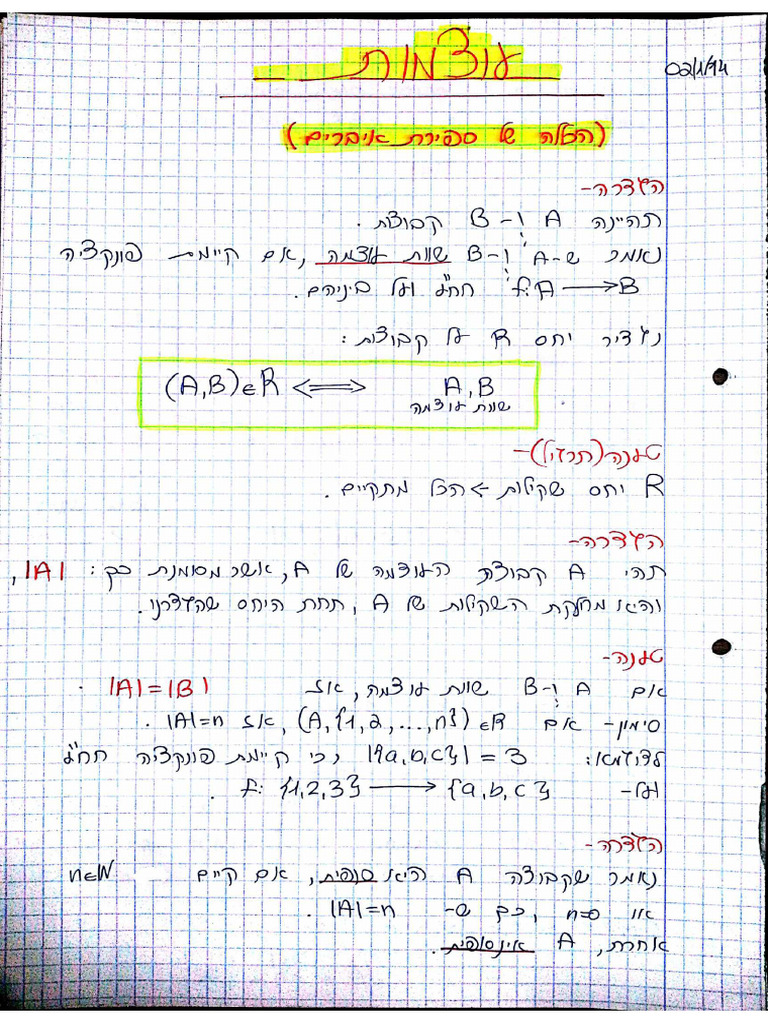 עוצמות
02/1/14
(הכללה של ספירת איברים)
הגדרה-
תהיינה A ו-B קבוצות.
נאמר ש-A ו-B שוות עוצמה, אם קיימת פונקציה
f: A → B חח"ע ועל ביניהם.
נגדיר יחס R על קבוצות:
(A,B)∈R ⟺ A,B
שוות עוצמה
טענה (תרגיל)-
R יחס שקילות ← הכל מתקיים.
הגדרה-
תהי A קבוצת העוצמה של A, אשר מסומנת כך: |A|,
והיא מחלקת השקילות של A, תחת היחס שהגדרנו.
טענה-
אם A ו-B שוות עוצמה, אז |A|=|B|.
סימון- אם (A,{1,2,...,n})∈R, אז |A|=n.
לדוגמא: |{a,b,c}|=3, כי קיימת פונקציה חח"ע
ועל- f: {1,2,3} → {a,b,c}.
הגדרה-
נאמר שקבוצה A היא סופית, אם קיים n∈N
או n=0, כך ש- |A|=n.
אחרת, A אינסופית.